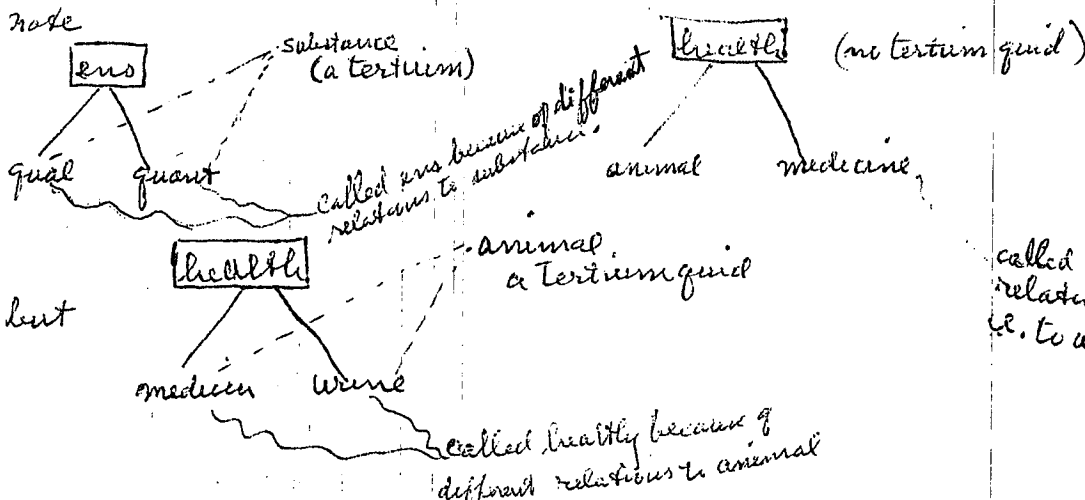 note
ens
substance
(a tertium)
qual quant
called ens because of different
relations to substance.
health (no tertium quid)
animal medicine
called
relatio
i.e. to a
but
health
animal
a Tertium quid
medicin urine
called healthy because of
different relations to animal